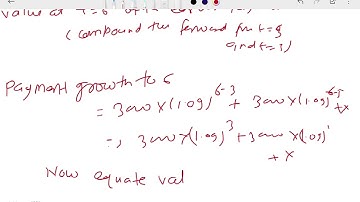 value at t=6
(compound the forward from t=3
and t=5)
Payment growth to 6
= 3000 x (1.09)^6-3 + 3000 x (1.09)^6-5 + x
=, 3000 x (1.09)^3 + 3000 x (1.09)^1
+ x
Now equate val